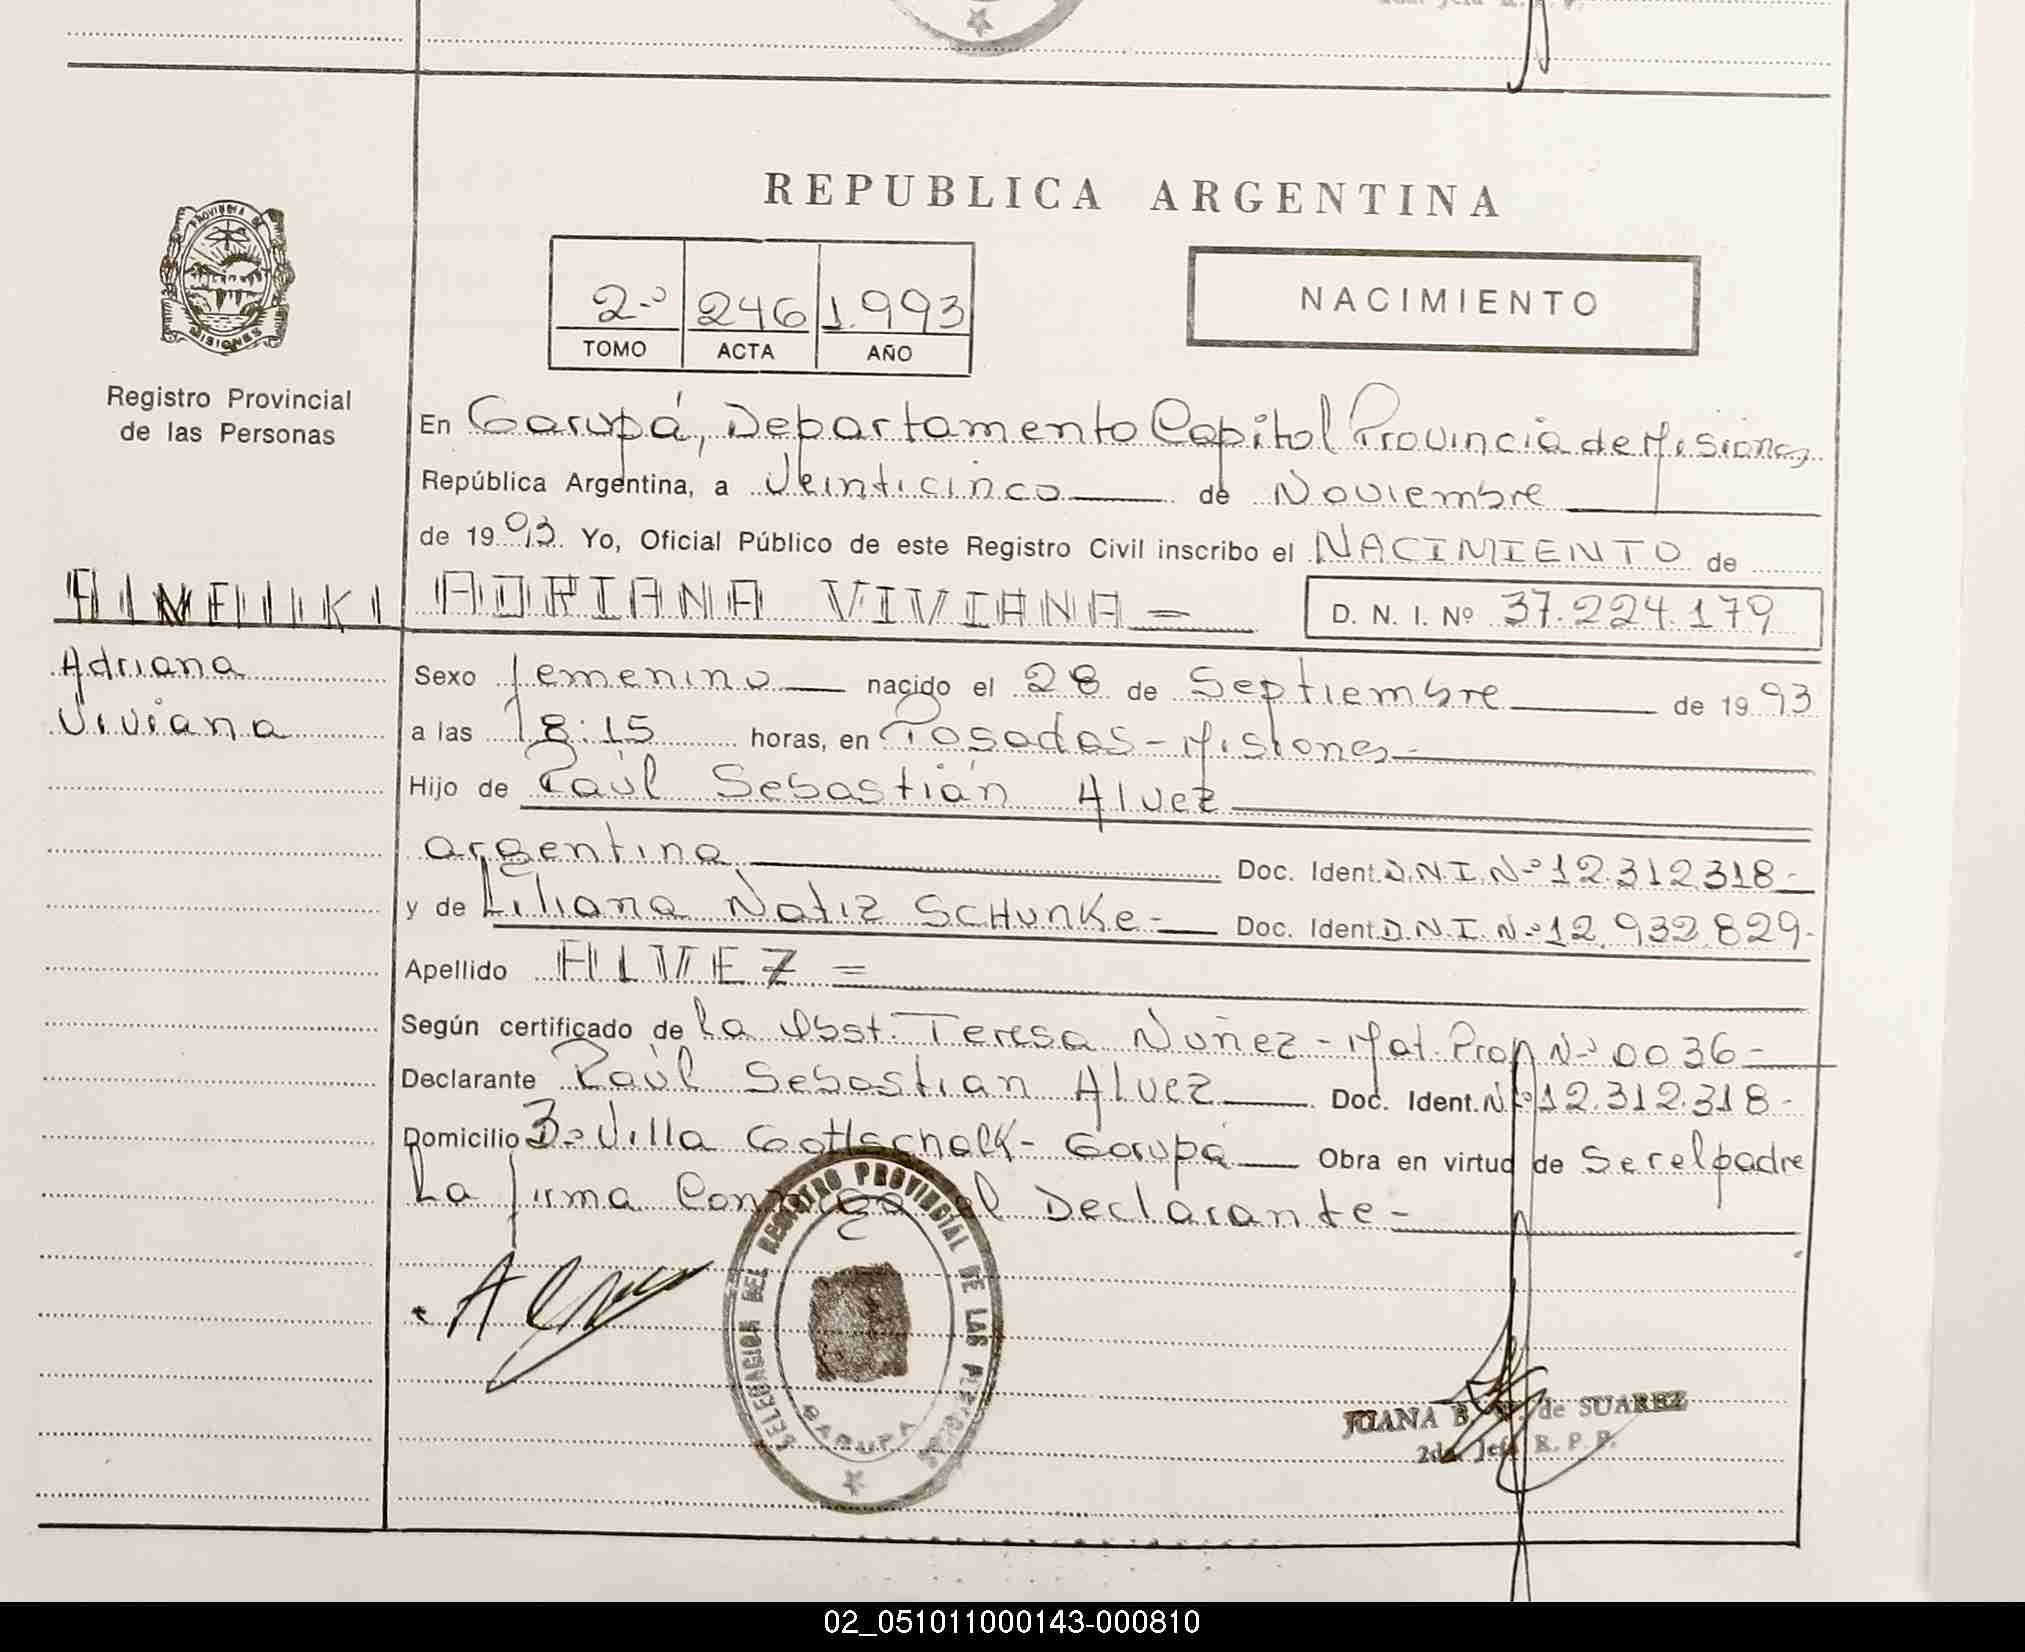 REPUBLICA ARGENTINA
PROVINCIA DE
MISIONES
Registro Provincial
de las Personas
2º 246 1.993
TOMO ACTA AÑO
NACIMIENTO
En Garupá, Departamento Capital Provincia de Misiones
República Argentina, a Veinticinco de Noviembre
de 1993 Yo, Oficial Público de este Registro Civil inscribo el NACIMIENTO de
ADRIANA VIVIANA = D. N. I. Nº 37.224.179
Adriana
Viviana
Sexo femenino nacido el 28 de Septiembre de 1993
a las 18:15 horas, en Posadas - Misiones -
Hijo de Raúl Sebastián Alvez
argentina Doc. Ident. D.N.I. Nº 12.312.318-
y de Liliana Natiz SCHUNKe - Doc. Ident. D.N.I. Nº 12.932.829-
Apellido ALVEZ =
Según certificado de la Obst. Teresa Nuñez - Mat. Prof Nº 0036-
Declarante Raúl Sebastian Alvez Doc. Ident. Nº 12.312.318-
Domicilio Bº Villa Gottschalk - Garupá Obra en virtud de Ser el padre
La firma Conmigo el Declarante -
DELEGACION DEL REGISTRO PROVINCIAL DE LAS PERSONAS
GARUPA
JUANA B. de SUAREZ
2da. Jefa R. P. P.
02_051011000143-000810